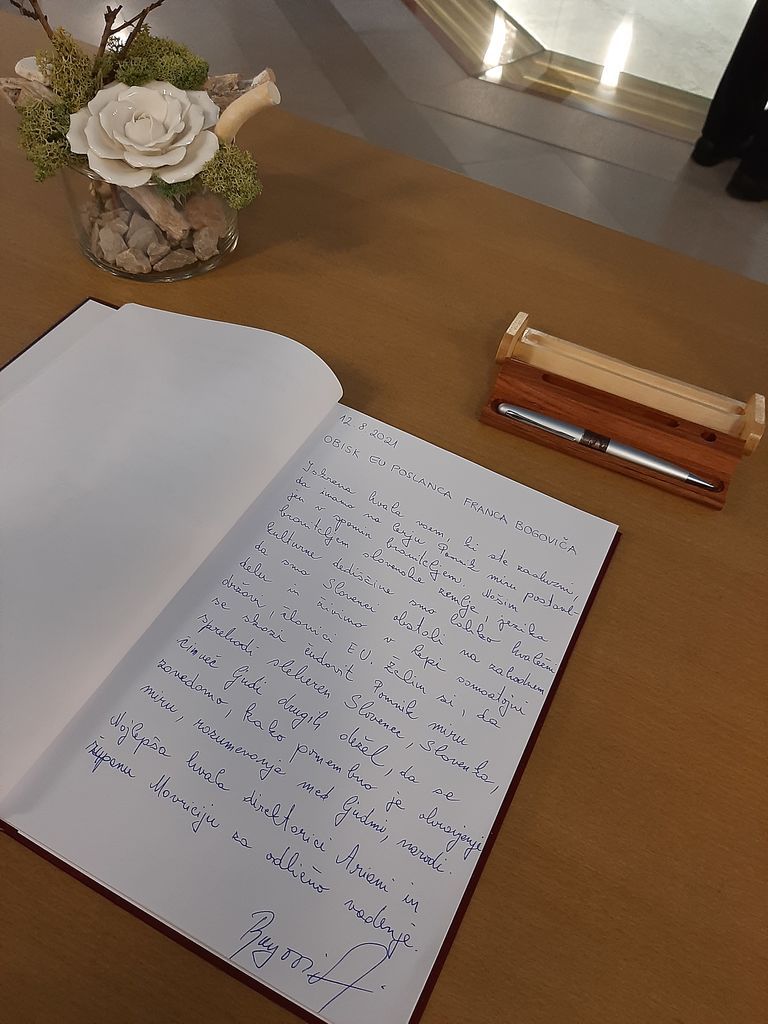 12. 8. 2021
OBISK EU POSLANCA FRANCA BOGOVIČA
Iskrena hvala vsem, ki ste zaslužni,
da imamo na Cerju Pomnik miru postavl-
jen v spomin braniteljem. Našim
braniteljem slovenske zemlje, jezika
kulturne dediščine smo lahko hvaležni
da smo Slovenci obstali na zahodnem
delu in živimo v lepi samostojni
državi, članici EU. Želim si, da
se skozi čudovit Pomnik miru
sprehodi sleheren Slovenec, Slovenka,
čimveč ljudi drugih držav, da se
zavedamo, kako pomembno je ohranjanje
miru, razumevanja med ljudmi, narodi.
Najlepša hvala direktorici Ariani in
županu Mavriciju za odlično vodenje.